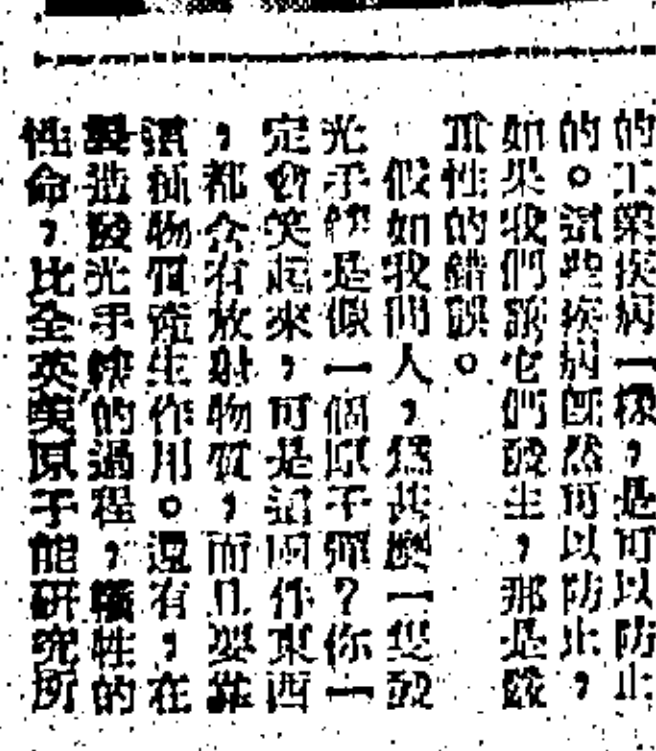 的工業疾病一樣，是可以防止
的。這些疾病既然可以防止，
如果我們讓它們發生，那是嚴
重性的錯誤。
假如我問人，爲甚麽一隻發
光手錶是像一個原子彈？你一
定會笑起來，可是這两件東西
，都含有放射物質，而且要靠
這種物質產生作用。還有，在
製造發光手錶的過程，犧牲的
性命，比全英美原子能研究所